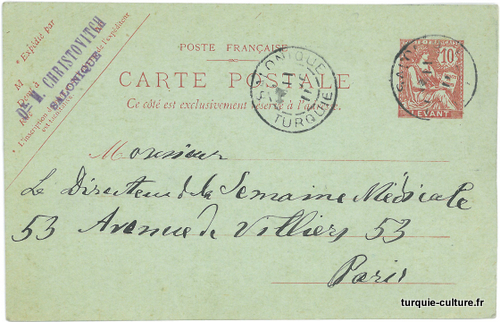 POSTE FRANÇAISE
CARTE POSTALE
Ce côté est exclusivement réservé à l'adresse.
Expédié par
M
Dr M. CHRISTOVITCH
SALONIQUE
SALONIQUE
TURQUIE
10c
LEVANT
Monsieur
Le Directeur de la Semaine Médicale
53 Avenue de Villiers 53
Paris
turquie-culture.fr